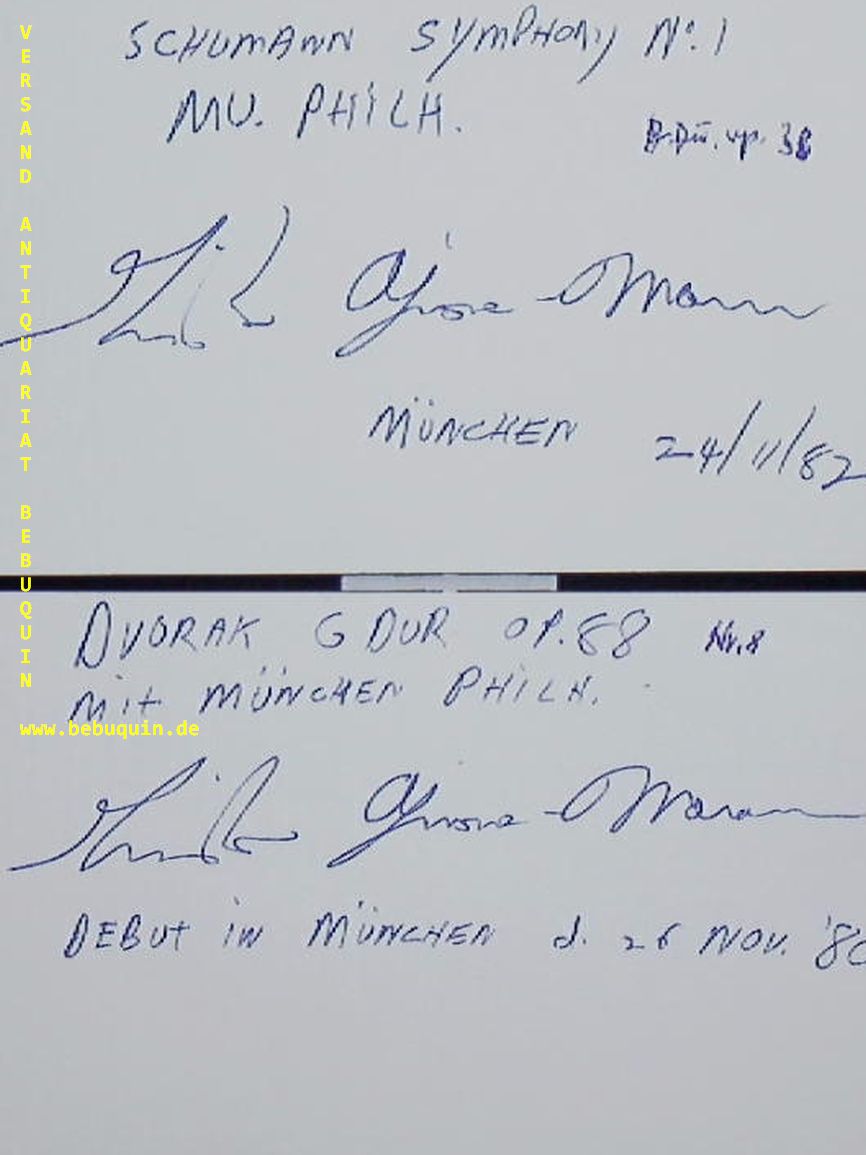 SCHUMANN SYMPHONY No. 1
MÜ. PHILH.
B-Dü. op. 38
MÜNCHEN 24/11/82
DVORAK G DUR OP. 88 Nr. 8
Mit MÜNCHEN PHILH.
DEBUT IN MÜNCHEN d. 26 NOV. '80
VERSAND ANTIQUARIAT BEBUQUIN
www.bebuquin.de